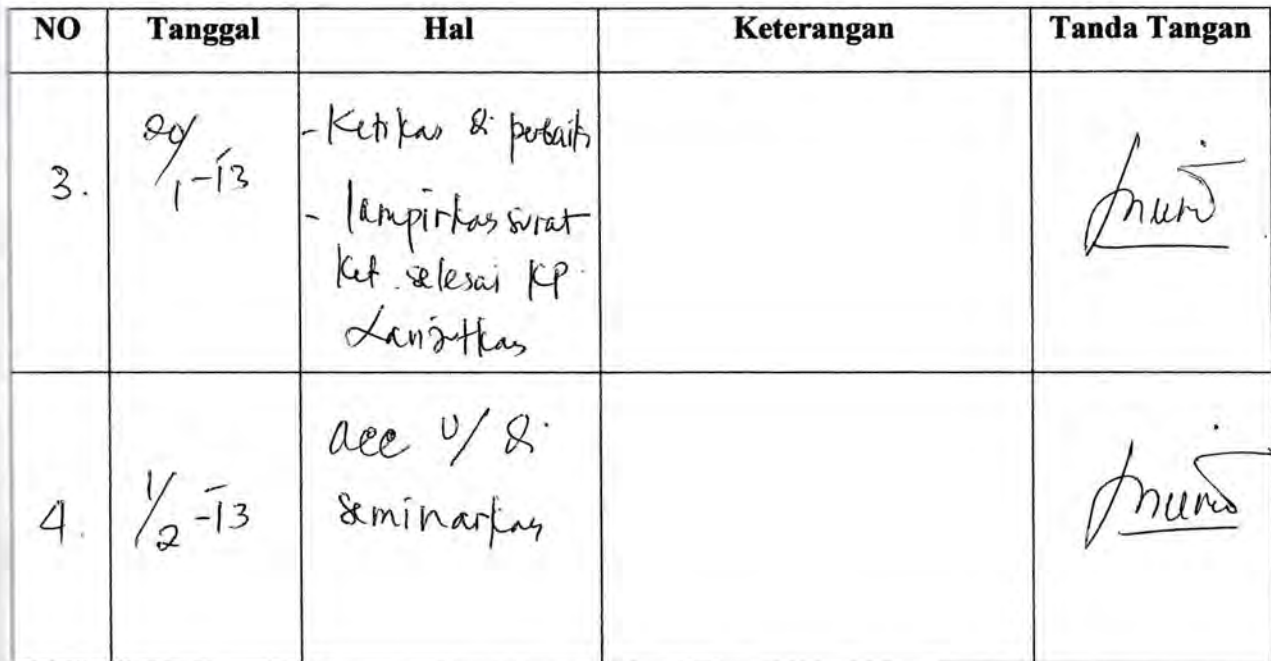 NO Tanggal Hal Keterangan Tanda Tangan
3. 20/1-13 - Ketikan di perbaiki
- lampirkan surat
ket. selesai KP
Lanjutkan
4. 1/2-13 acc u/ di
seminarkan